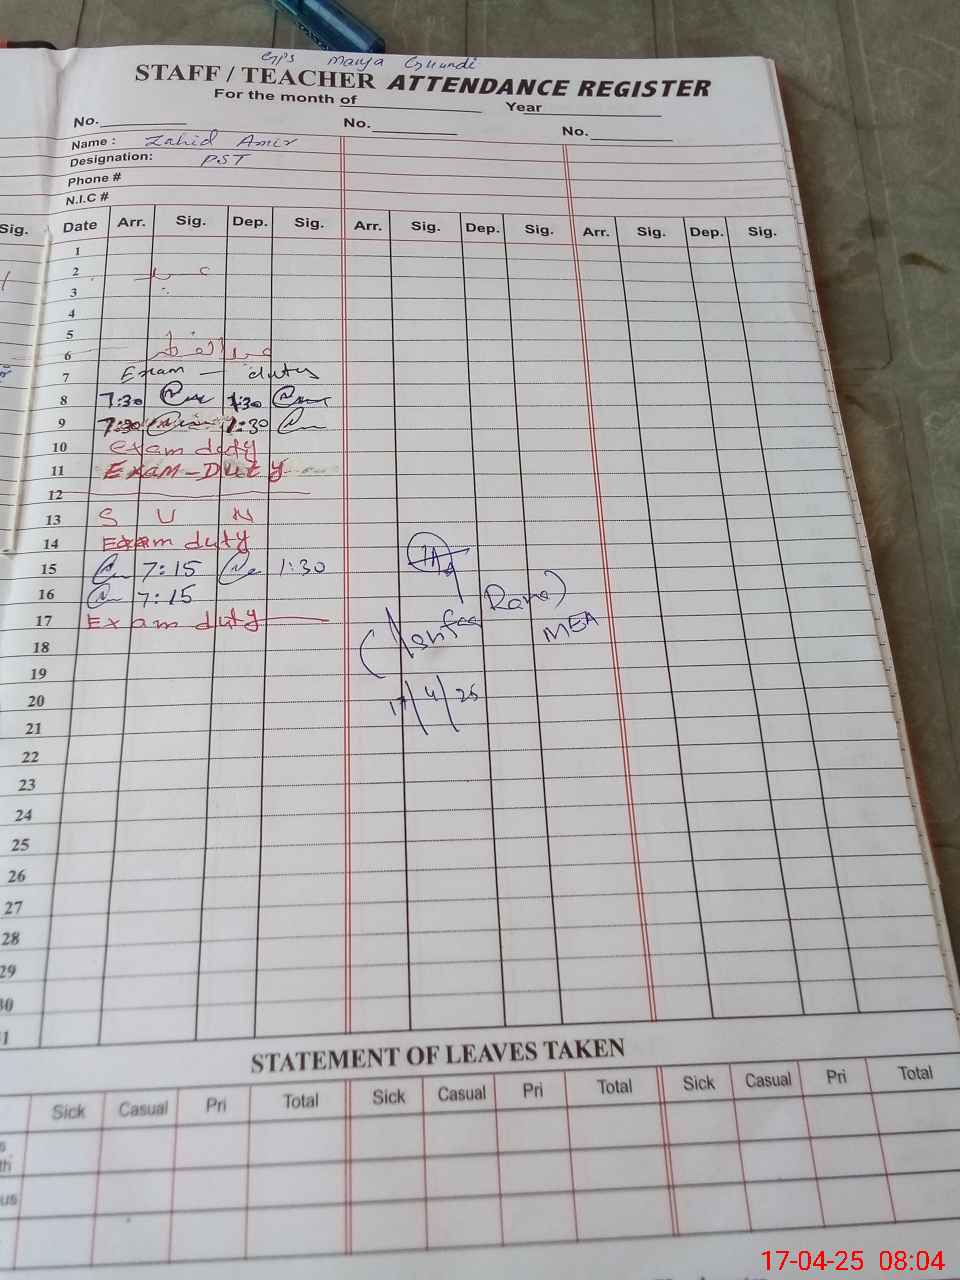 GPS Marya Ghundi
STAFF / TEACHER ATTENDANCE REGISTER
For the month of Year
No. No. No.
Name : Zahid Amir
Designation: PST
Phone #
N.I.C #
Sig. Date Arr. Sig. Dep. Sig. Arr. Sig. Dep. Sig. Arr. Sig. Dep. Sig.
1
2
3
4
5
6
7 Exam - duty
8 7:30 1:30
9 7:30 1:30
10 exam duty
11 Exam-Duty
12
13 S U N
14 Exam duty
15 7:15 1:30
16 7:15
17 Exam duty
18 MEA
19
20 17/4/25
21
22
23
24
25
26
27
28
29
30
STATEMENT OF LEAVES TAKEN
Sick Casual Pri Total Sick Casual Pri Total Sick Casual Pri Total
17-04-25 08:04